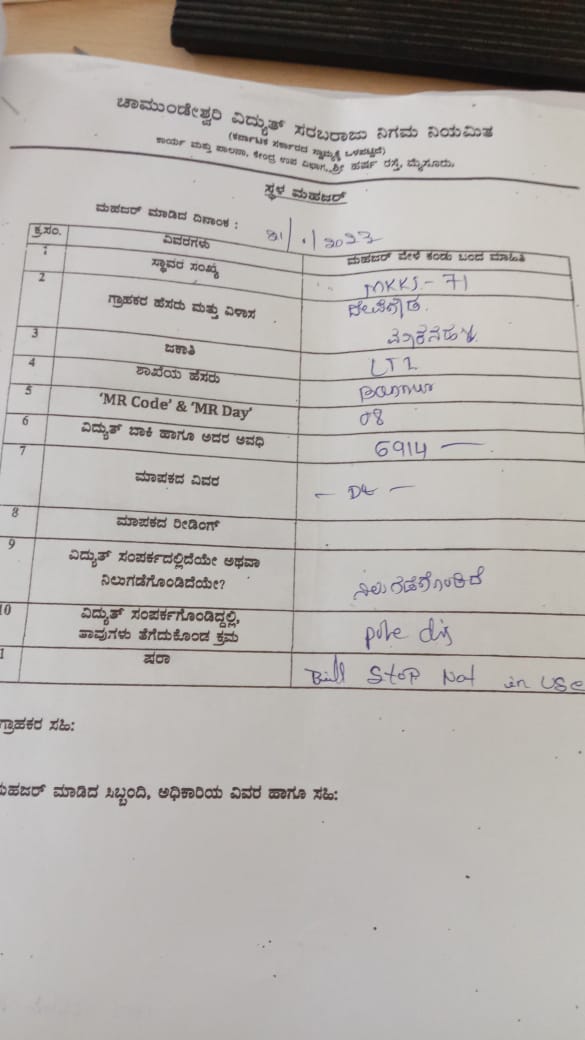 ಚಾಮುಂಡೇಶ್ವರಿ ವಿದ್ಯುತ್ ಸರಬರಾಜು ನಿಗಮ ನಿಯಮಿತ
(ಕರ್ನಾಟಕ ಸರ್ಕಾರದ ಸ್ವಾಮ್ಯಕ್ಕೆ ಒಳಪಟ್ಟಿದೆ)
ಕಾರ್ಯ ಮತ್ತು ಪಾಲನಾ, ಕೇಂದ್ರ ಉಪ ವಿಭಾಗ, ಶ್ರೀ ಹರ್ಷ ರಸ್ತೆ, ಮೈಸೂರು.
ಸ್ಥಳ ಮಹಜರ್
ಮಹಜರ್ ಮಾಡಿದ ದಿನಾಂಕ :
ಕ್ರ.ಸಂ. ವಿವರಗಳು ಮಹಜರ್ ವೇಳೆ ಕಂಡು ಬಂದ ಮಾಹಿತಿ
1 ಸ್ಥಾವರ ಸಂಖ್ಯೆ MKKJ-71
2 ಗ್ರಾಹಕರ ಹೆಸರು ಮತ್ತು ವಿಳಾಸ ದೇವೇಗೌಡ.
3 ಜಕಾತಿ LT2
4 ಶಾಖೆಯ ಹೆಸರು
5 'MR Code' & 'MR Day' 08
6 ವಿದ್ಯುತ್ ಬಾಕಿ ಹಾಗೂ ಅದರ ಅವಧಿ 6914 —
7 ಮಾಪಕದ ವಿವರ
8 ಮಾಪಕದ ರೀಡಿಂಗ್
9 ವಿದ್ಯುತ್ ಸಂಪರ್ಕದಲ್ಲಿದೆಯೇ ಅಥವಾ
ನಿಲುಗಡೆಗೊಂಡಿದೆಯೇ? ನಿಲುಗಡೆಗೊಂಡಿದೆ
10 ವಿದ್ಯುತ್ ಸಂಪರ್ಕಗೊಂಡಿದ್ದಲ್ಲಿ,
ತಾವುಗಳು ತೆಗೆದುಕೊಂಡ ಕ್ರಮ pole dis
1 ಷರಾ Bill Stop Not in USe
ಗ್ರಾಹಕರ ಸಹಿ:
ಮಹಜರ್ ಮಾಡಿದ ಸಿಬ್ಬಂದಿ, ಅಧಿಕಾರಿಯ ವಿವರ ಹಾಗೂ ಸಹಿ: